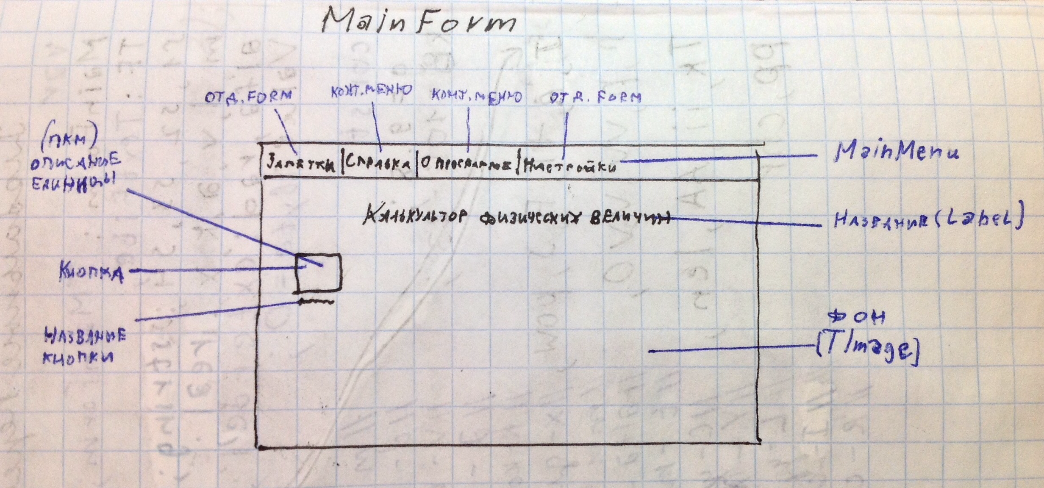 MainForm
ОТД. FORM
КОНТ. МЕНЮ
КОНТ. МЕНЮ
ОТД. FORM
(ПКМ)
ОПИСАНИЕ
ЕДИНИЦЫ
ЗАМЕТКИ
СПРАВКА
О ПРОГРАММЕ
НАСТРОЙКИ
MainMenu
КАЛЬКУЛЬТОР ФИЗИЧЕСКИХ ВЕЛИЧИН
НАЗВАНИЕ (Label)
КНОПКА
НАЗВАНИЕ
КНОПКИ
ФОН
[TImage]